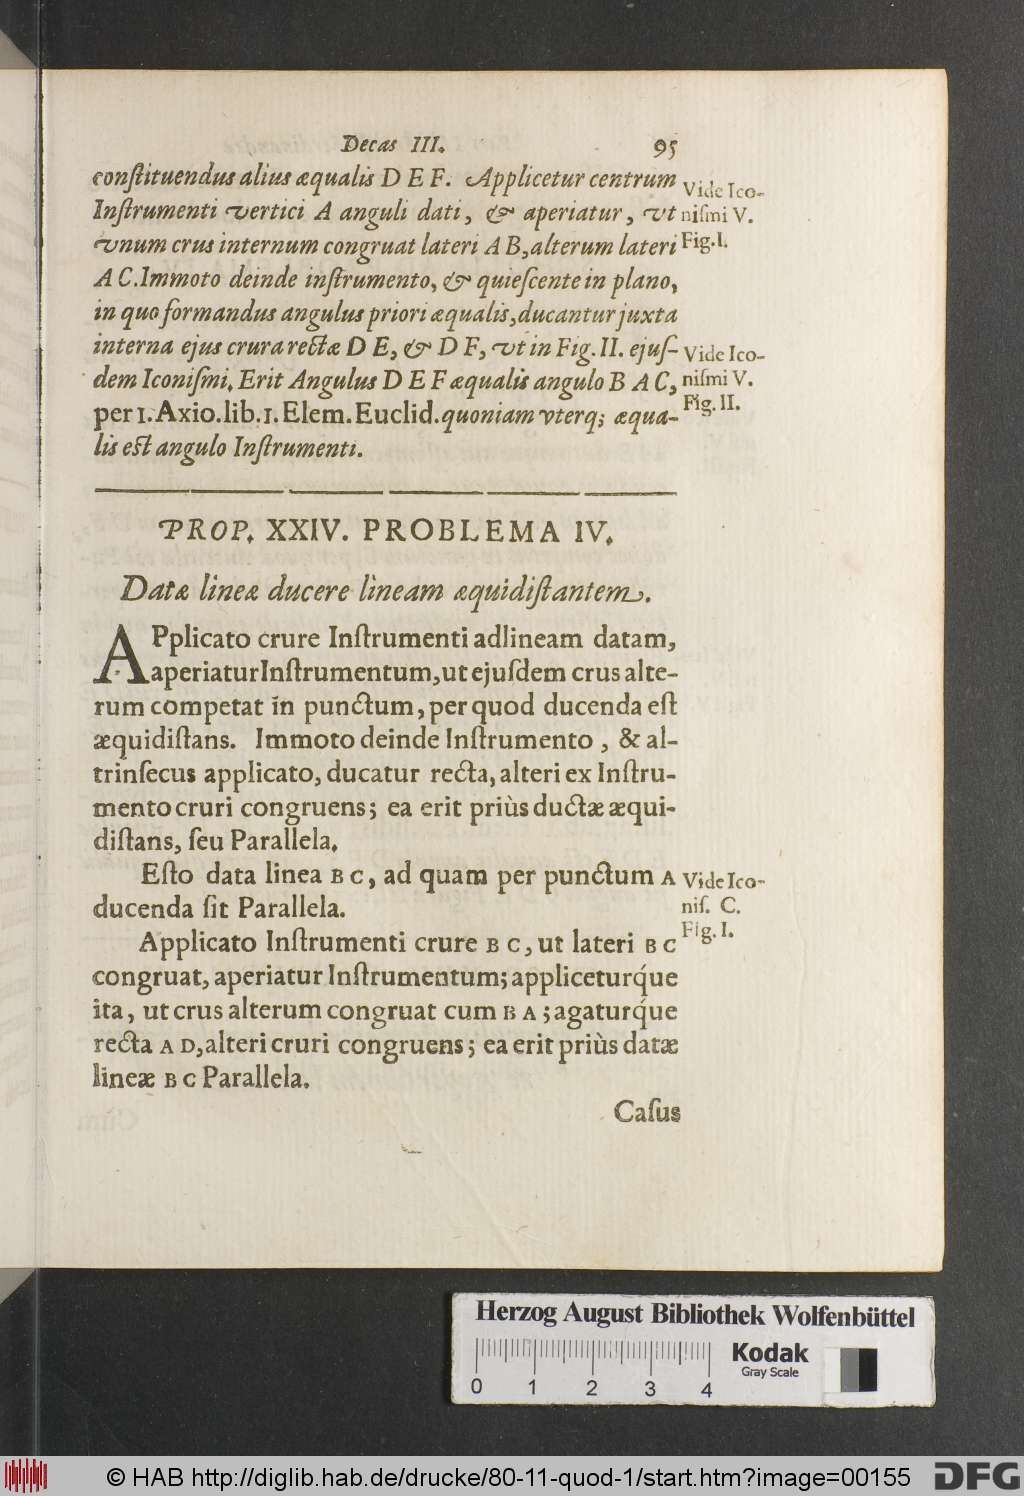 Decas III. 95
conſtituendus alius æqualis D E F. Applicetur centrum
Inſtrumenti vertici A anguli dati, & aperiatur, vt
vnum crus internum congruat lateri A B, alterum lateri
A C. Immoto deinde inſtrumento, & quieſcente in plano,
in quo formandus angulus priori æqualis, ducantur juxta
interna ejus crura rectæ D E, & D F, vt in Fig. II. ejuſ-
dem Iconiſmi. Erit Angulus D E F æqualis angulo B A C,
per 1. Axio. lib. 1. Elem. Euclid. quoniam vterq; æqua-
lis est angulo Inſtrumenti.
Vide Ico-
niſmi V.
Fig. I.
Vide Ico-
niſmi V.
Fig. II.
PROP. XXIV. PROBLEMA IV.
Datæ lineæ ducere lineam æquidiſtantem.
APplicato crure Inſtrumenti ad lineam datam,
aperiatur Inſtrumentum, ut ejuſdem crus alte-
rum competat in punctum, per quod ducenda eſt
æquidiſtans. Immoto deinde Inſtrumento, & al-
trinſecus applicato, ducatur recta, alteri ex Inſtru-
mento cruri congruens; ea erit priùs ductæ æqui-
diſtans, ſeu Parallela.
Eſto data linea B C, ad quam per punctum A
ducenda ſit Parallela.
Vide Ico-
niſ. C.
Fig. I.
Applicato Inſtrumenti crure B C, ut lateri B C
congruat, aperiatur Inſtrumentum; appliceturq́ue
ita, ut crus alterum congruat cum B A; agaturq́ue
recta A D, alteri cruri congruens; ea erit priùs datæ
lineæ B C Parallela.
Caſus
Herzog August Bibliothek Wolfenbüttel
Kodak
Gray Scale
0 1 2 3 4
© HAB http://diglib.hab.de/drucke/80-11-quod-1/start.htm?image=00155
DFG